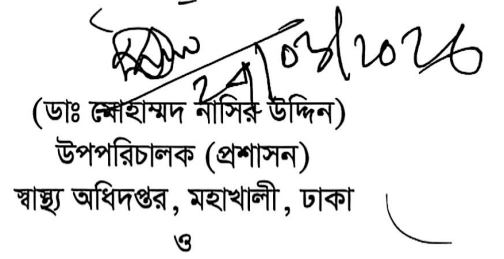 (ডাঃ মোহাম্মদ নাসির উদ্দিন)
উপপরিচালক (প্রশাসন)
স্বাস্থ্য অধিদপ্তর, মহাখালী, ঢাকা
ও